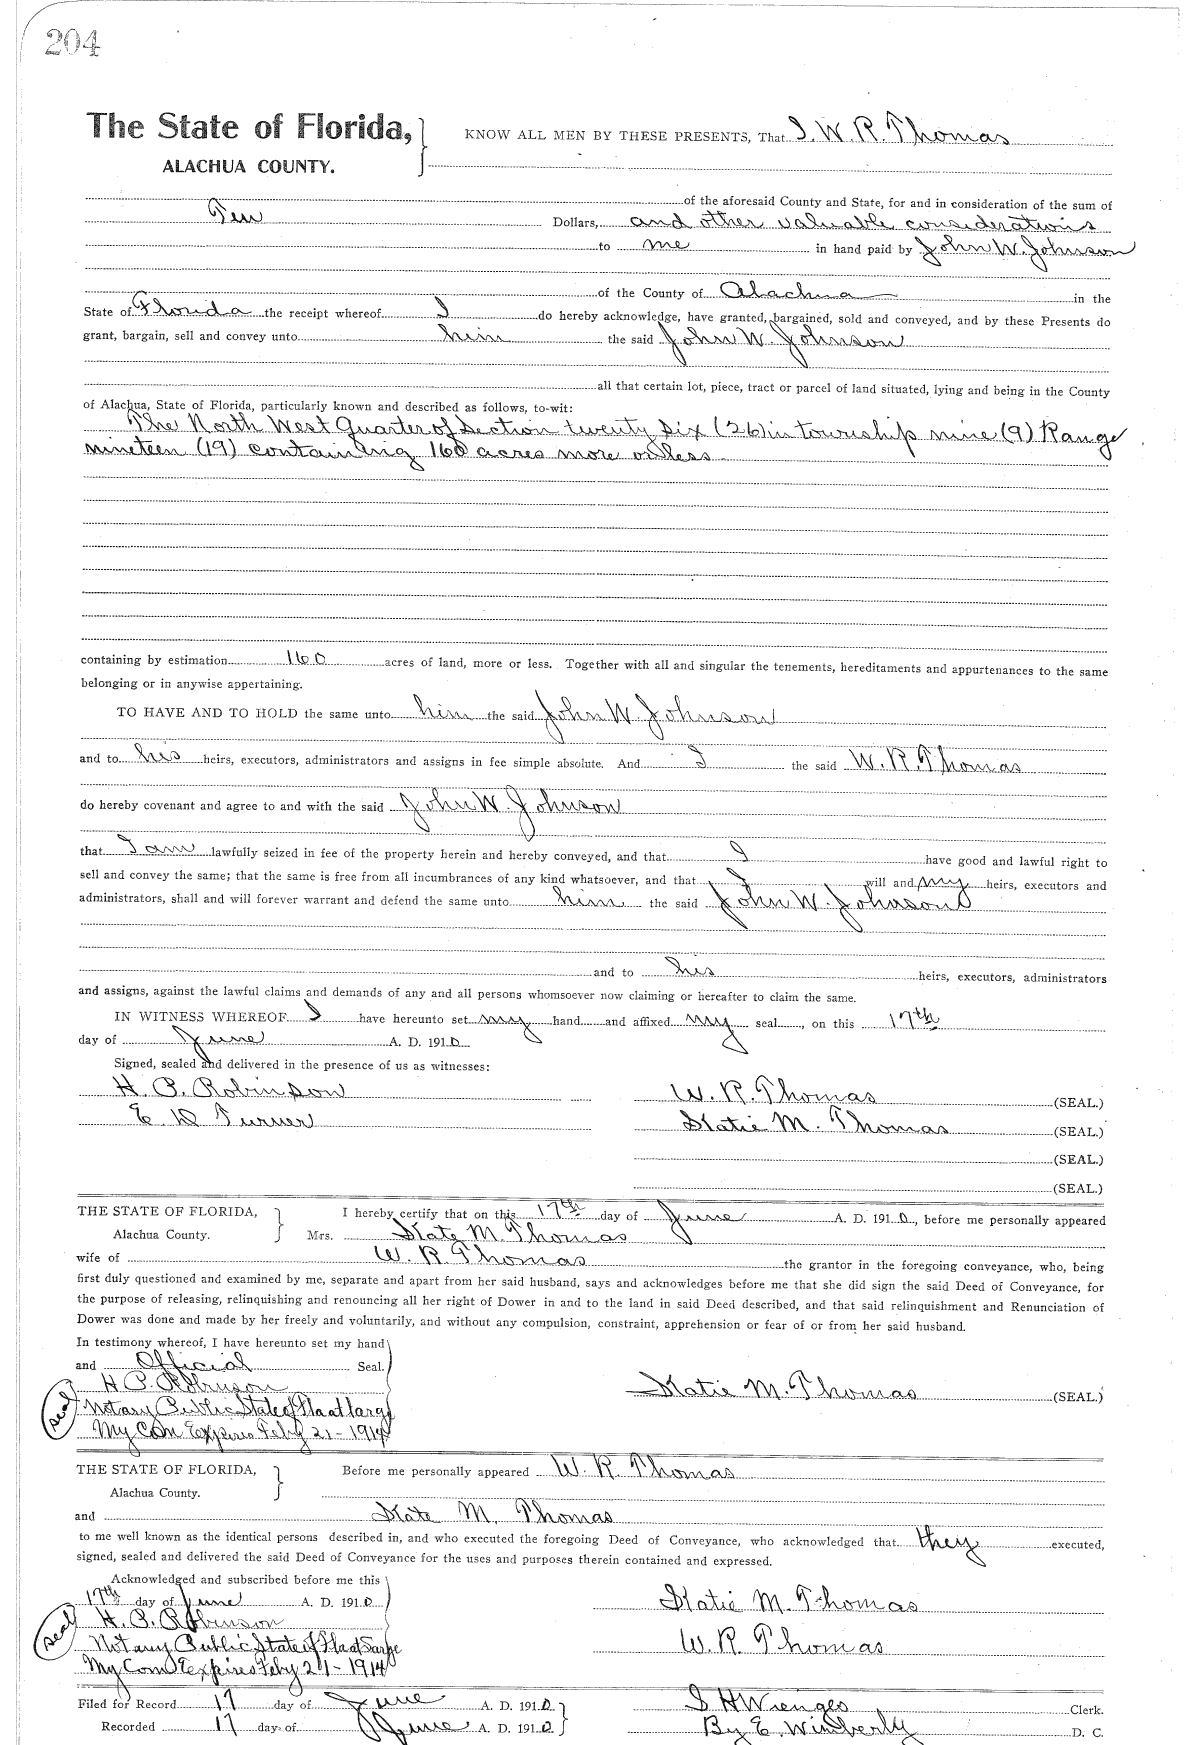 204
The State of Florida, KNOW ALL MEN BY THESE PRESENTS, That I. W. R. Thomas
ALACHUA COUNTY.
of the aforesaid County and State, for and in consideration of the sum of
Ten Dollars, and other valuable considerations
to me in hand paid by John W. Johnson
of the County of Alachua in the
State of Florida the receipt whereof I do hereby acknowledge, have granted, bargained, sold and conveyed, and by these Presents do
grant, bargain, sell and convey unto him the said John W. Johnson
all that certain lot, piece, tract or parcel of land situated, lying and being in the County
of Alachua, State of Florida, particularly known and described as follows, to-wit:
The North West Quarter of Section twenty six (26) in township nine (9) Range
nineteen (19) containing 160 acres more or less
containing by estimation 160 acres of land, more or less. Together with all and singular the tenements, hereditaments and appurtenances to the same
belonging or in anywise appertaining.
TO HAVE AND TO HOLD the same unto him the said John W. Johnson
and to his heirs, executors, administrators and assigns in fee simple absolute. And I the said W. R. Thomas
do hereby covenant and agree to and with the said John W. Johnson
that I am lawfully seized in fee of the property herein and hereby conveyed, and that I have good and lawful right to
sell and convey the same; that the same is free from all incumbrances of any kind whatsoever, and that I will and my heirs, executors and
administrators, shall and will forever warrant and defend the same unto him the said John W. Johnson
and to his heirs, executors, administrators
and assigns, against the lawful claims and demands of any and all persons whomsoever now claiming or hereafter to claim the same.
IN WITNESS WHEREOF I have hereunto set my hand and affixed my seal, on this 17th
day of June A. D. 1910
Signed, sealed and delivered in the presence of us as witnesses:
H. P. Robinson W. R. Thomas (SEAL.)
E. D Turner Katie M. Thomas (SEAL.)
(SEAL.)
(SEAL.)
THE STATE OF FLORIDA, I hereby certify that on this 17th day of June A. D. 1910, before me personally appeared
Alachua County. Mrs. Kate M. Thomas
wife of W. R. Thomas the grantor in the foregoing conveyance, who, being
first duly questioned and examined by me, separate and apart from her said husband, says and acknowledges before me that she did sign the said Deed of Conveyance, for
the purpose of releasing, relinquishing and renouncing all her right of Dower in and to the land in said Deed described, and that said relinquishment and Renunciation of
Dower was done and made by her freely and voluntarily, and without any compulsion, constraint, apprehension or fear of or from her said husband.
In testimony whereof, I have hereunto set my hand
and Official Seal.
H P. Robinson Katie M. Thomas (SEAL.)
seal Notary Public State of Fla at large
My Com Expires Feby 21-1914
THE STATE OF FLORIDA, Before me personally appeared W. R. Thomas
Alachua County.
and Kate M. Thomas
to me well known as the identical persons described in, and who executed the foregoing Deed of Conveyance, who acknowledged that they executed,
signed, sealed and delivered the said Deed of Conveyance for the uses and purposes therein contained and expressed.
Acknowledged and subscribed before me this
17th day of June A. D. 1910 Katie M. Thomas
H. P. Robinson
seal Notary Public State of Fla at Large W. R. Thomas
My Com Expires Feby 21-1914
Filed for Record 17 day of June A. D. 1910 S H Wienges Clerk.
Recorded 17 day of June A. D. 1910 By E. Wimberly D. C.